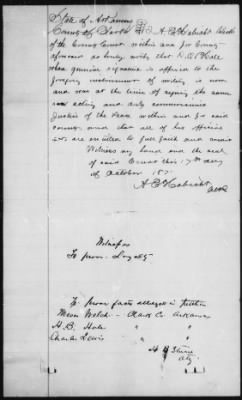 State of Arkansas
County of Clark SS I A. B. Habicht Clerk
of the County Court within and for County
aforesaid do hereby certify that Hall
whose genuine signature is affixed to the
foregoing instrument of writing is now
and was at the time of signing the same
an acting and duly commissioned
Justice of the Peace within and for said
county and that all of his official
acts are entitled to full faith and credit
Witness my hand and the seal
of said Court this 17th day
of October 187
A. B. Habicht
Clerk
Witnesses
To prove Loyalty
To prove facts alleged in petition
Welch - Clark Co Arkansas
H. B. Hale " "
Charles Lewis " "
Atty